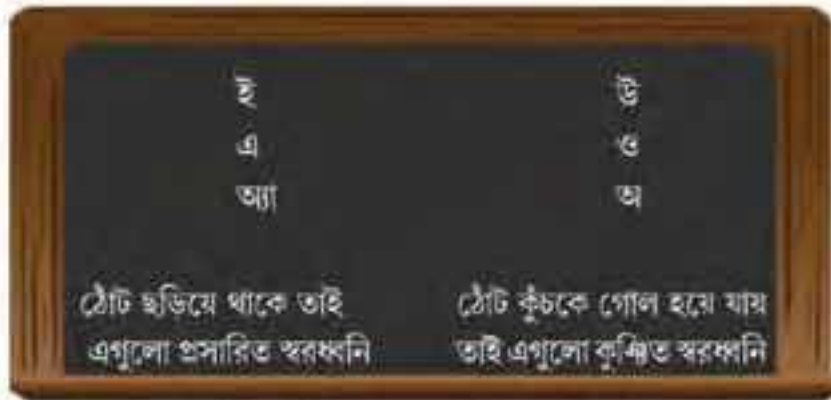 ই
উ
এ
ও
অ্যা
অ
ঠোঁট ছড়িয়ে থাকে তাই
এগুলো প্রসারিত স্বরধ্বনি
ঠোঁট কুঁচকে গোল হয়ে যায়
তাই এগুলো কুঞ্চিত স্বরধ্বনি